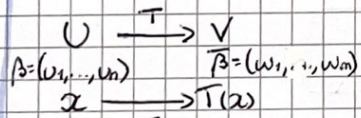 U —T→ V
β=(u₁,...,uₙ) β̅=(w₁,...,wₘ)
x ⟶ T(x)